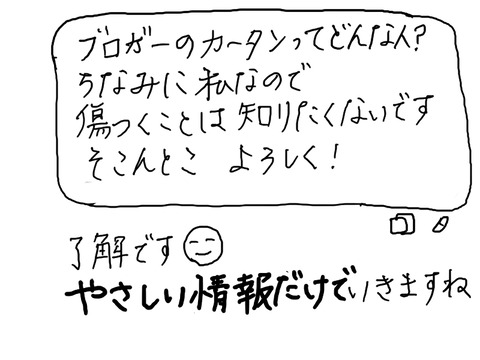 ブロガーのカータンってどんな人?
ちなみに私なので
傷つくことは知りたくないです
そこんとこ よろしく!
了解です
やさしい情報だけでいきますね